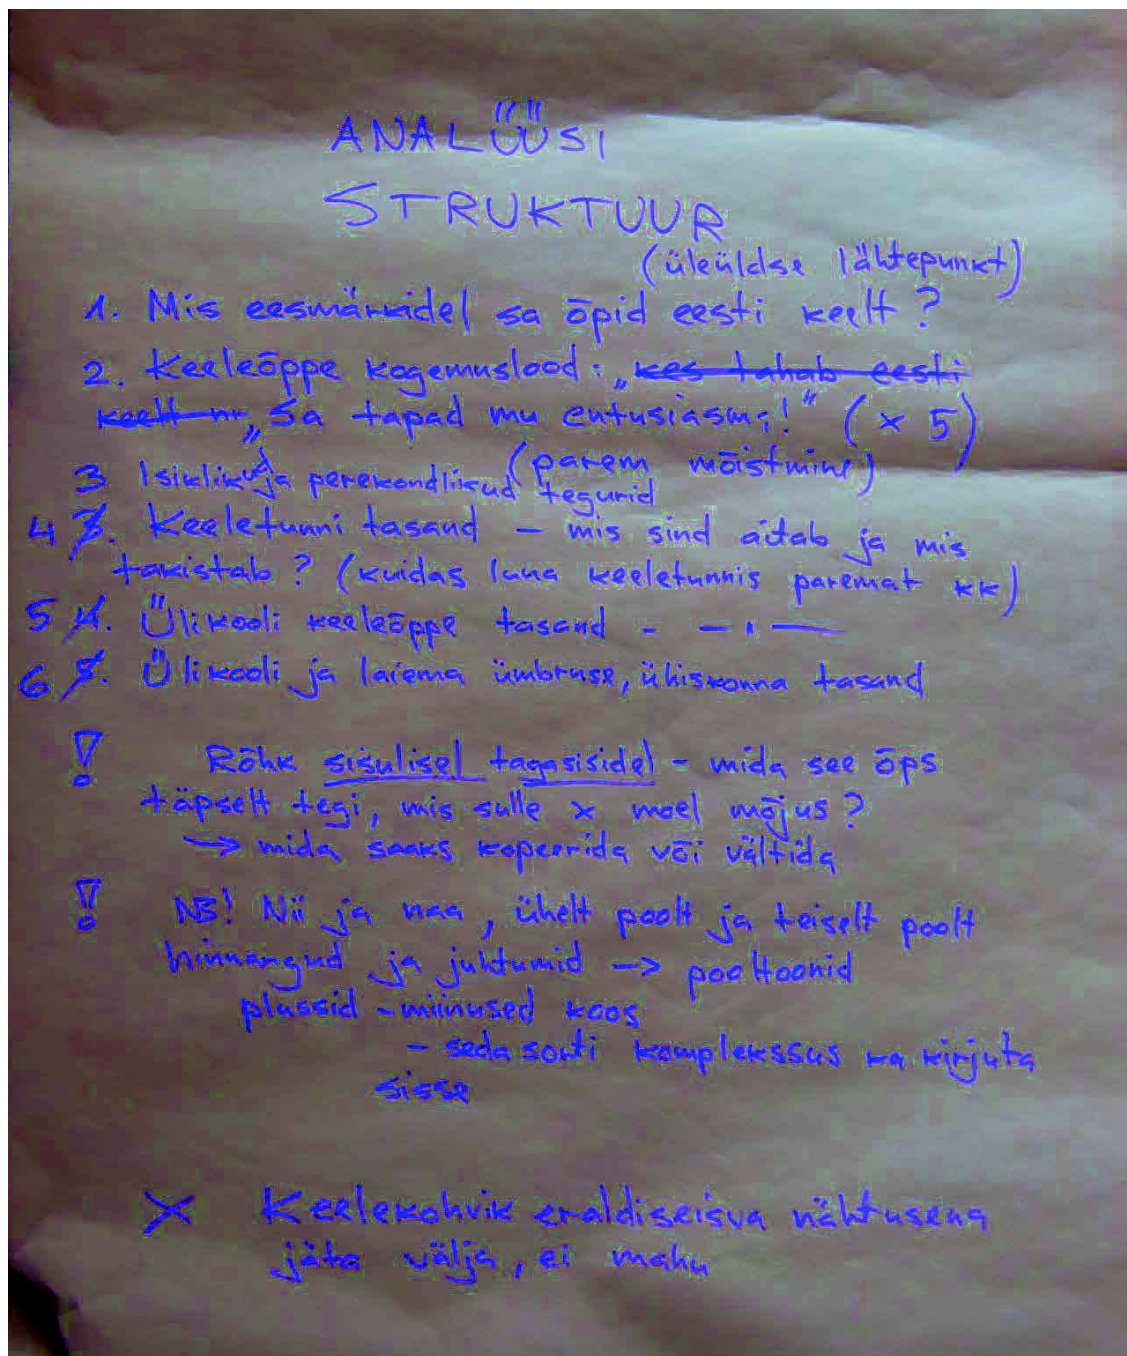 ANALÜÜSI
STRUKTUUR
(üleüldse lähtepunkt)
1. Mis eesmärkidel sa õpid eesti keelt?
2. Keeleõppe kogemuslood: „kes tahab eesti
keelt „Sa tapad mu entusiasmi!" (x 5)
(parem mõistmine)
3. Isiklikud ja perekondlikud tegurid
4 3. Keeletunni tasand – mis sind aitab ja mis
takistab? (kuidas luua keeletunnis paremat kk)
5 4. Ülikooli keeleõppe tasand - — " —
6 5. Ülikooli ja laiema ümbruse, ühiskonna tasand
! Rõhk sisulisel tagasisidel - mida see õps
täpselt tegi, mis sulle x moel mõjus?
→ mida saaks kopeerida või vältida
! NB! Nii ja naa, ühelt poolt ja teiselt poolt
hinnangud ja juhtumid → pooltoonid
plussid - miinused koos
- seda sorti komplekssus ka kirjuta
sisse
X Keelekohvik eraldiseisva nähtusena
jäta välja, ei mahu